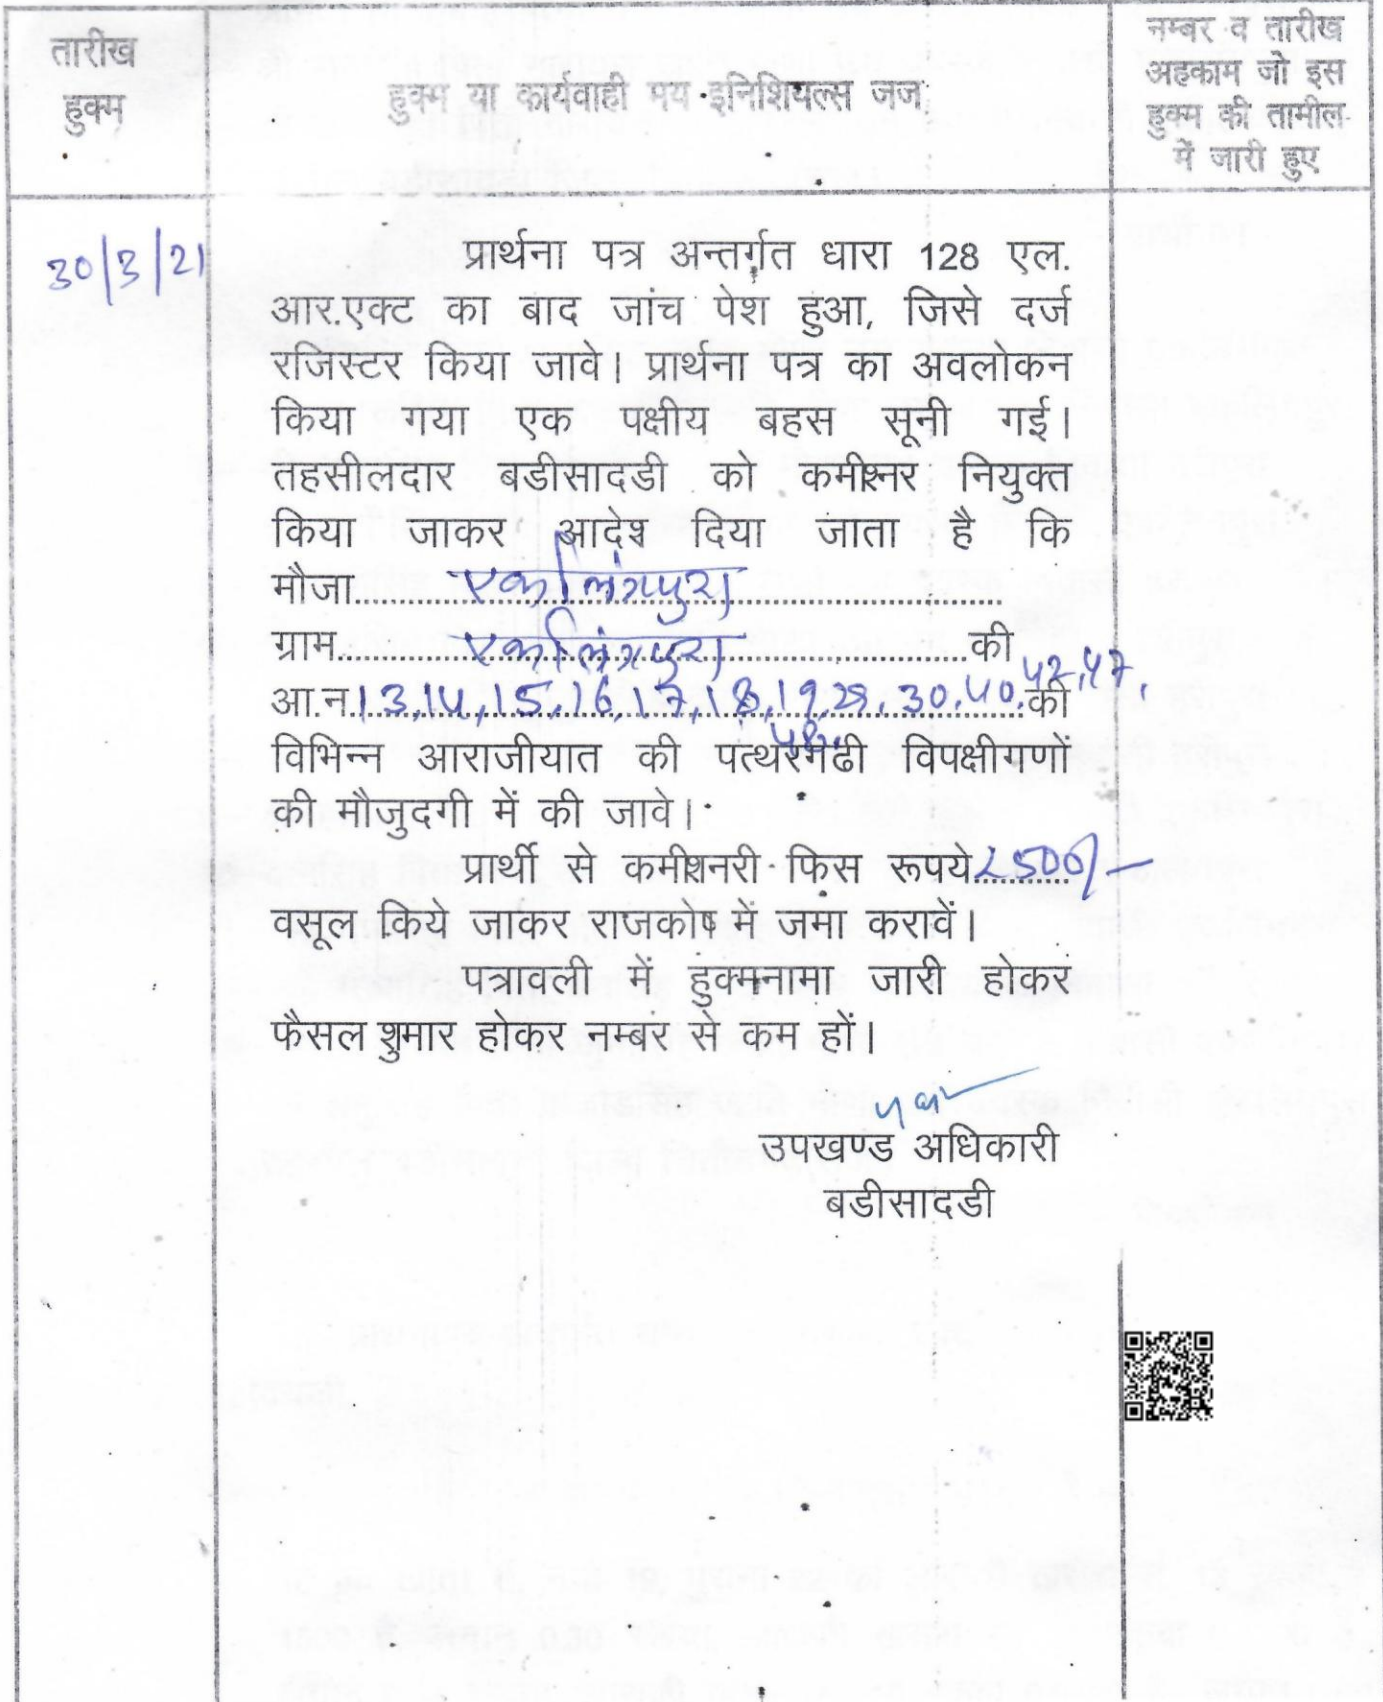 तारीख
हुक्म
हुक्म या कार्यवाही मय इनिशियल्स जज
नम्बर व तारीख
अहकाम जो इस
हुक्म की तामील
में जारी हुए
30/3/21
प्रार्थना पत्र अन्तर्गत धारा 128 एल.
आर.एक्ट का बाद जांच पेश हुआ, जिसे दर्ज
रजिस्टर किया जावे। प्रार्थना पत्र का अवलोकन
किया गया एक पक्षीय बहस सूनी गई।
तहसीलदार बडीसादडी को कमीश्नर नियुक्त
किया जाकर आदेश दिया जाता है कि
मौजा....................
ग्राम....................की
आ.न.13,14,15,16,17,18,19,29,30,40,42,47,की
48.
विभिन्न आराजीयात की पत्थरगढी विपक्षीगणों
की मौजुदगी में की जावे।
प्रार्थी से कमीश्नरी फिस रूपये 2500/-
वसूल किये जाकर राजकोष में जमा करावें।
पत्रावली में हुक्मनामा जारी होकर
फैसल शुमार होकर नम्बर से कम हों।
उपखण्ड अधिकारी
बडीसादडी